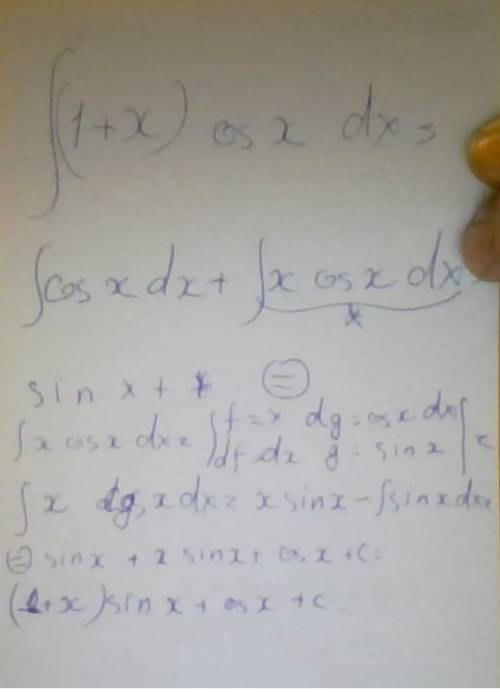 ∫(1+x) cos x dx =
∫cos x dx + ∫x cos x dx =
*
sin x + * ⊜
∫ x cos x dx = | f = x dg = cos x dx |
| df = dx g = sin x | =
∫ x dx = x sin x - ∫sin x dx =
⊜ sin x + x sin x + cos x + c =
(1+x) sin x + cos x + c